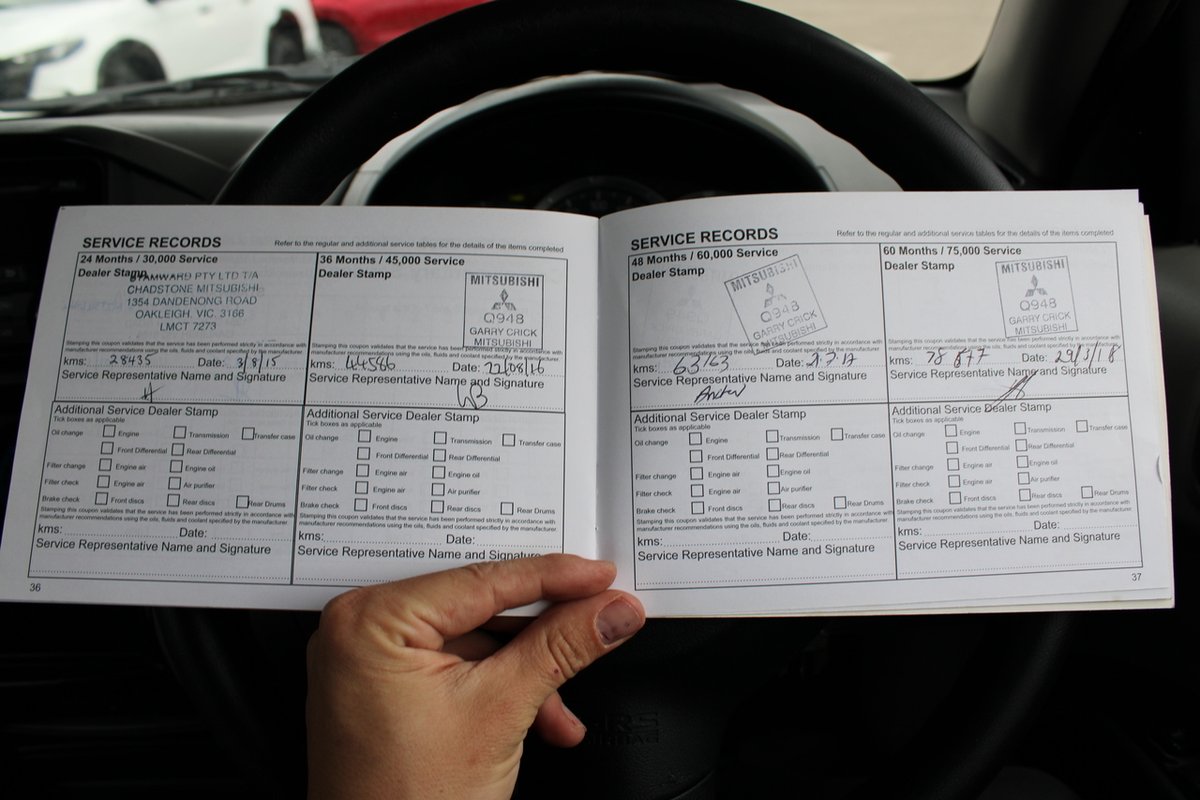 SERVICE RECORDS
Refer to the regular and additional service tables for the details of the items completed
24 Months / 30,000 Service
Dealer Stamp
STAMWARD PTY LTD T/A
CHADSTONE MITSUBISHI
1354 DANDENONG ROAD
OAKLEIGH, VIC. 3166
LMCT 7273
Stamping this coupon validates that the service has been performed strictly in accordance with
manufacturer recommendations using the oils, fluids and coolant specified by the manufacturer.
kms: 28435 Date: 3/8/15
Service Representative Name and Signature
Additional Service Dealer Stamp
Tick boxes as applicable
Oil change Engine Transmission Transfer case
Front Differential Rear Differential
Filter change Engine air Engine oil
Filter check Engine air Air purifier
Brake check Front discs Rear discs Rear Drums
Stamping this coupon validates that the service has been performed strictly in accordance with
manufacturer recommendations using the oils, fluids and coolant specified by the manufacturer.
kms: Date:
Service Representative Name and Signature
36
36 Months / 45,000 Service
Dealer Stamp
MITSUBISHI
Q948
GARRY CRICK
MITSUBISHI
Stamping this coupon validates that the service has been performed strictly in accordance with
manufacturer recommendations using the oils, fluids and coolant specified by the manufacturer.
kms: 44566 Date: 22/08/16
Service Representative Name and Signature
Additional Service Dealer Stamp
Tick boxes as applicable
Oil change Engine Transmission Transfer case
Front Differential Rear Differential
Filter change Engine air Engine oil
Filter check Engine air Air purifier
Brake check Front discs Rear discs Rear Drums
Stamping this coupon validates that the service has been performed strictly in accordance with
manufacturer recommendations using the oils, fluids and coolant specified by the manufacturer.
kms: Date:
Service Representative Name and Signature
SERVICE RECORDS
Refer to the regular and additional service tables for the details of the items completed
48 Months / 60,000 Service
Dealer Stamp
MITSUBISHI
Q948
GARRY CRICK
MITSUBISHI
Stamping this coupon validates that the service has been performed strictly in accordance with
manufacturer recommendations using the oils, fluids and coolant specified by the manufacturer.
kms: 63163 Date:
Service Representative Name and Signature
Additional Service Dealer Stamp
Tick boxes as applicable
Oil change Engine Transmission Transfer case
Front Differential Rear Differential
Filter change Engine air Engine oil
Filter check Engine air Air purifier
Brake check Front discs Rear discs Rear Drums
Stamping this coupon validates that the service has been performed strictly in accordance with
manufacturer recommendations using the oils, fluids and coolant specified by the manufacturer.
kms: Date:
Service Representative Name and Signature
60 Months / 75,000 Service
Dealer Stamp
MITSUBISHI
Q948
GARRY CRICK
MITSUBISHI
Stamping this coupon validates that the service has been performed strictly in accordance with
manufacturer recommendations using the oils, fluids and coolant specified by the manufacturer.
kms: 78 877 Date: 29/3/18
Service Representative Name and Signature
Additional Service Dealer Stamp
Tick boxes as applicable
Oil change Engine Transmission Transfer case
Front Differential Rear Differential
Filter change Engine air Engine oil
Filter check Engine air Air purifier
Brake check Front discs Rear discs Rear Drums
Stamping this coupon validates that the service has been performed strictly in accordance with
manufacturer recommendations using the oils, fluids and coolant specified by the manufacturer.
kms: Date:
Service Representative Name and Signature
37